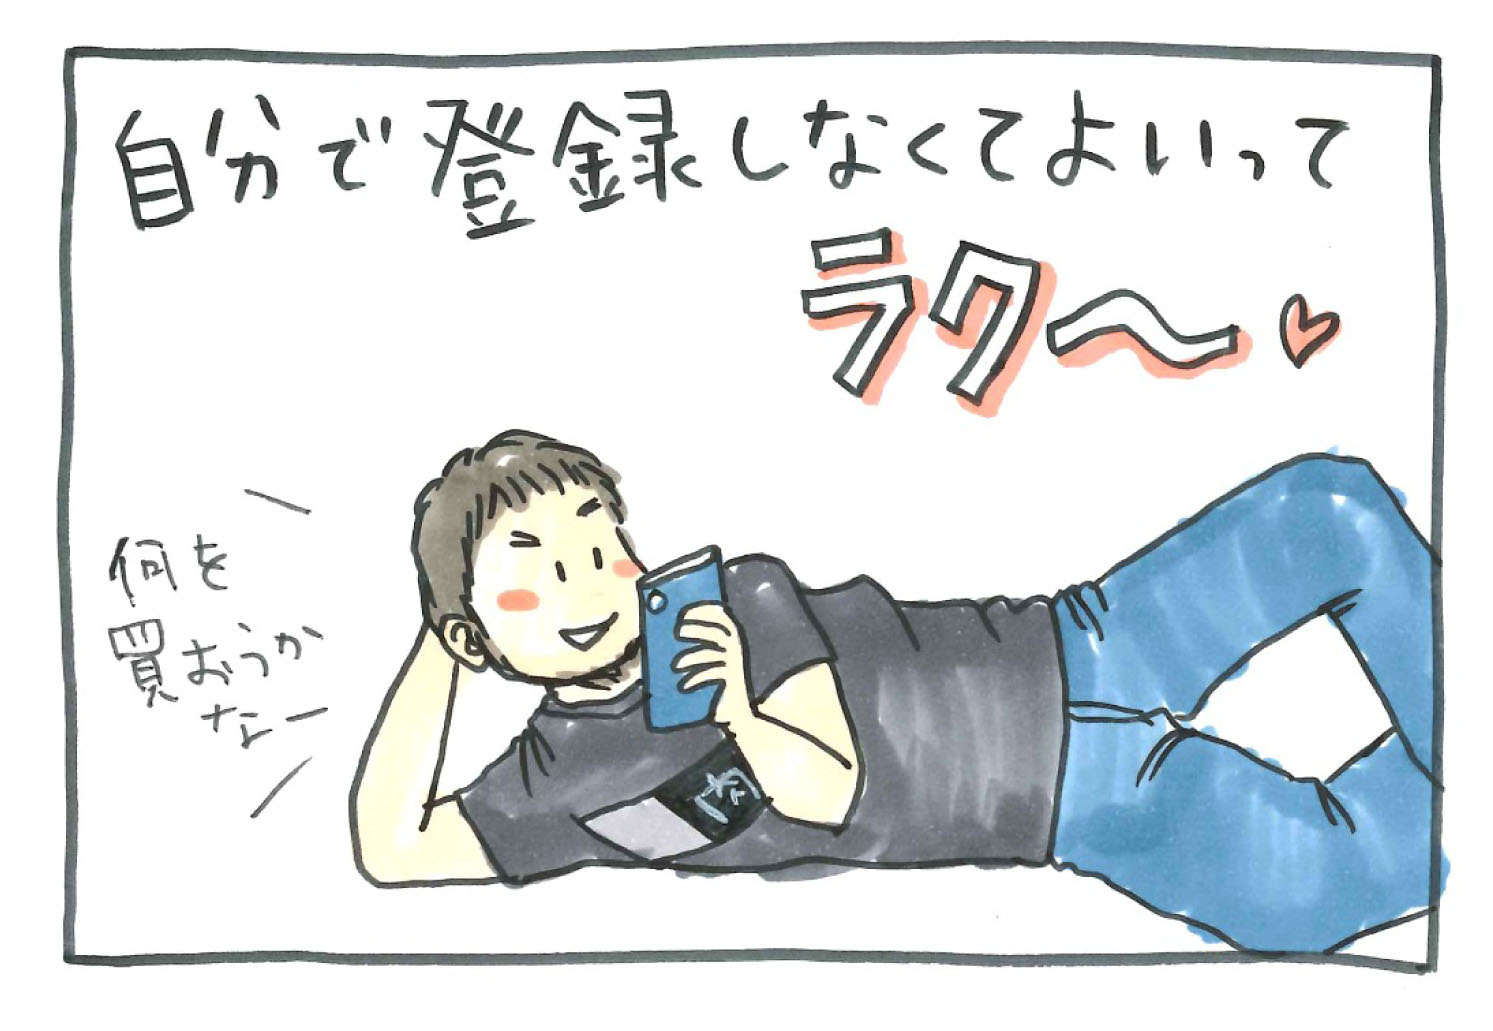 自分で登録しなくてよいって
ラク〜♥
何を
買おうか
なー